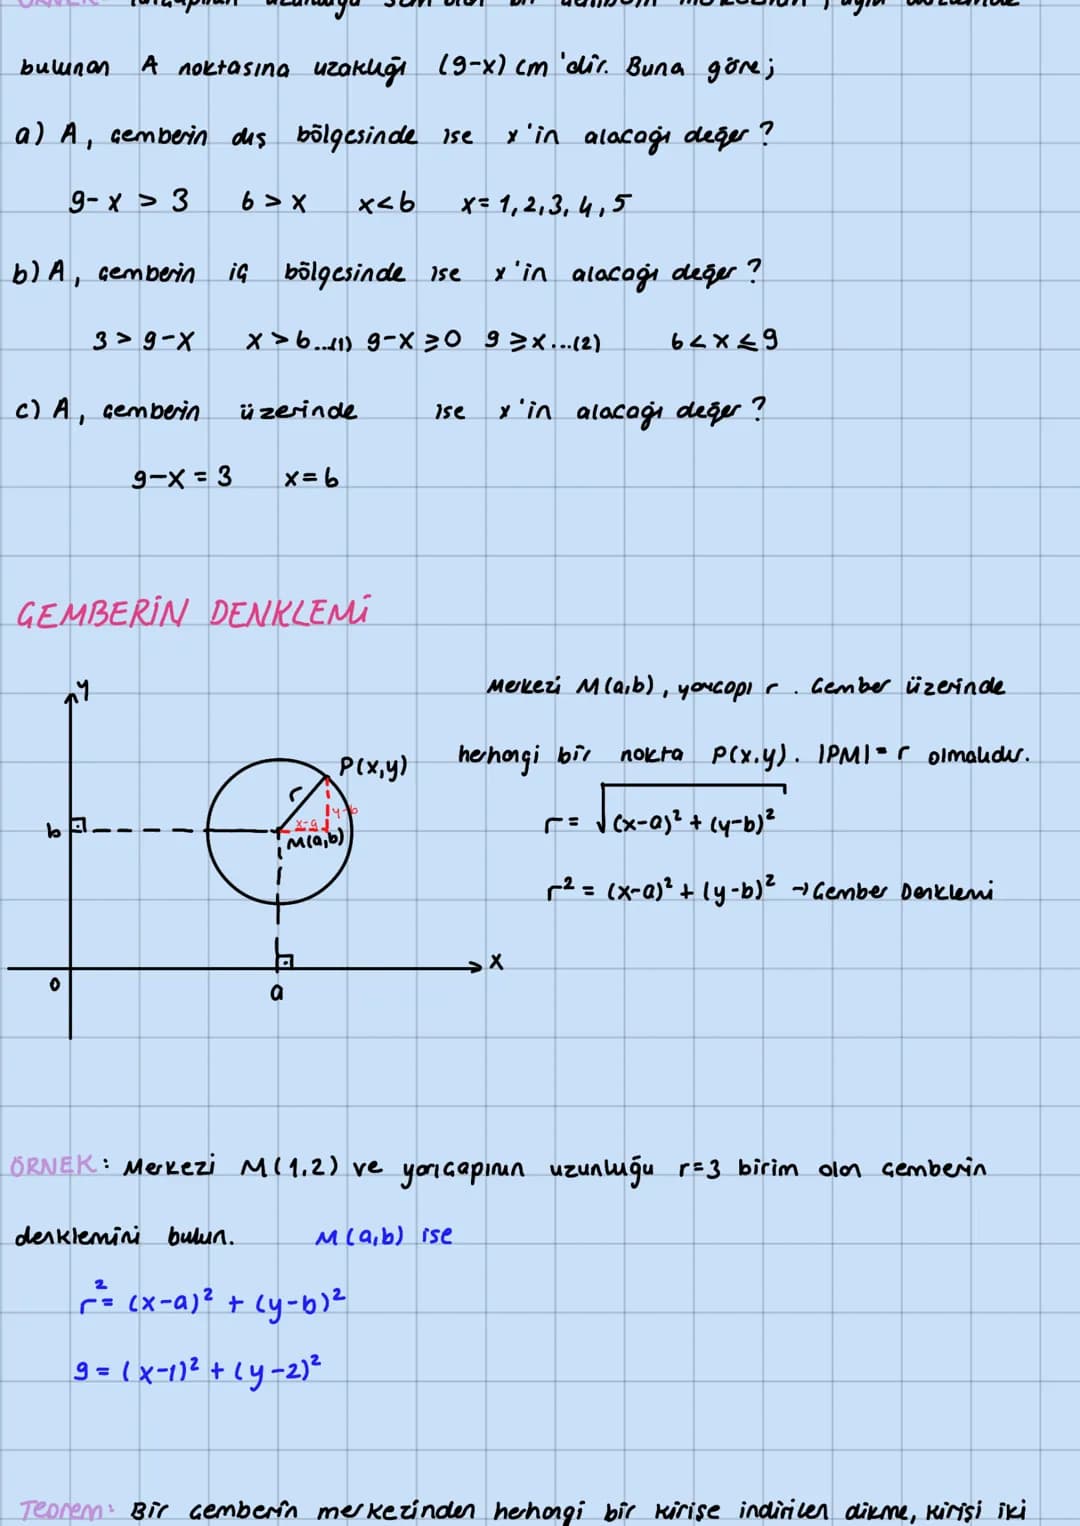 bulunan A noktasına uzaklığı (9-x) cm 'dir. Buna göre;
a) A, çemberin dış bölgesinde ise x'in alacağı değer?
9-x > 3 6 > x x<6 x= 1,2,3,4,5
b) A, çemberin iç bölgesinde ise x'in alacağı değer?
3 > 9-x x > 6...(1) 9-x ≥ 0 9 ≥ x...(2) 6 < x ≤ 9
c) A, çemberin üzerinde ise x'in alacağı değer?
9-x = 3 x=6
ÇEMBERİN DENKLEMİ
Merkezi M(a,b), yarıçapı r. Çember üzerinde
herhangi bir nokta P(x,y). |PM| = r olmalıdır.
r = √(x-a)² + (y-b)²
r² = (x-a)² + (y-b)² → Çember Denklemi
y
P(x,y)
r
y-b
x-a
b
M(a,b)
x
0
a
ÖRNEK: Merkezi M(1,2) ve yarıçapının uzunluğu r=3 birim olan çemberin
denklemini bulun. M(a,b) ise
r² = (x-a)² + (y-b)²
9 = (x-1)² + (y-2)²
Teorem: Bir çemberin merkezinden herhangi bir kirişe indirilen dikme, kirişi iki